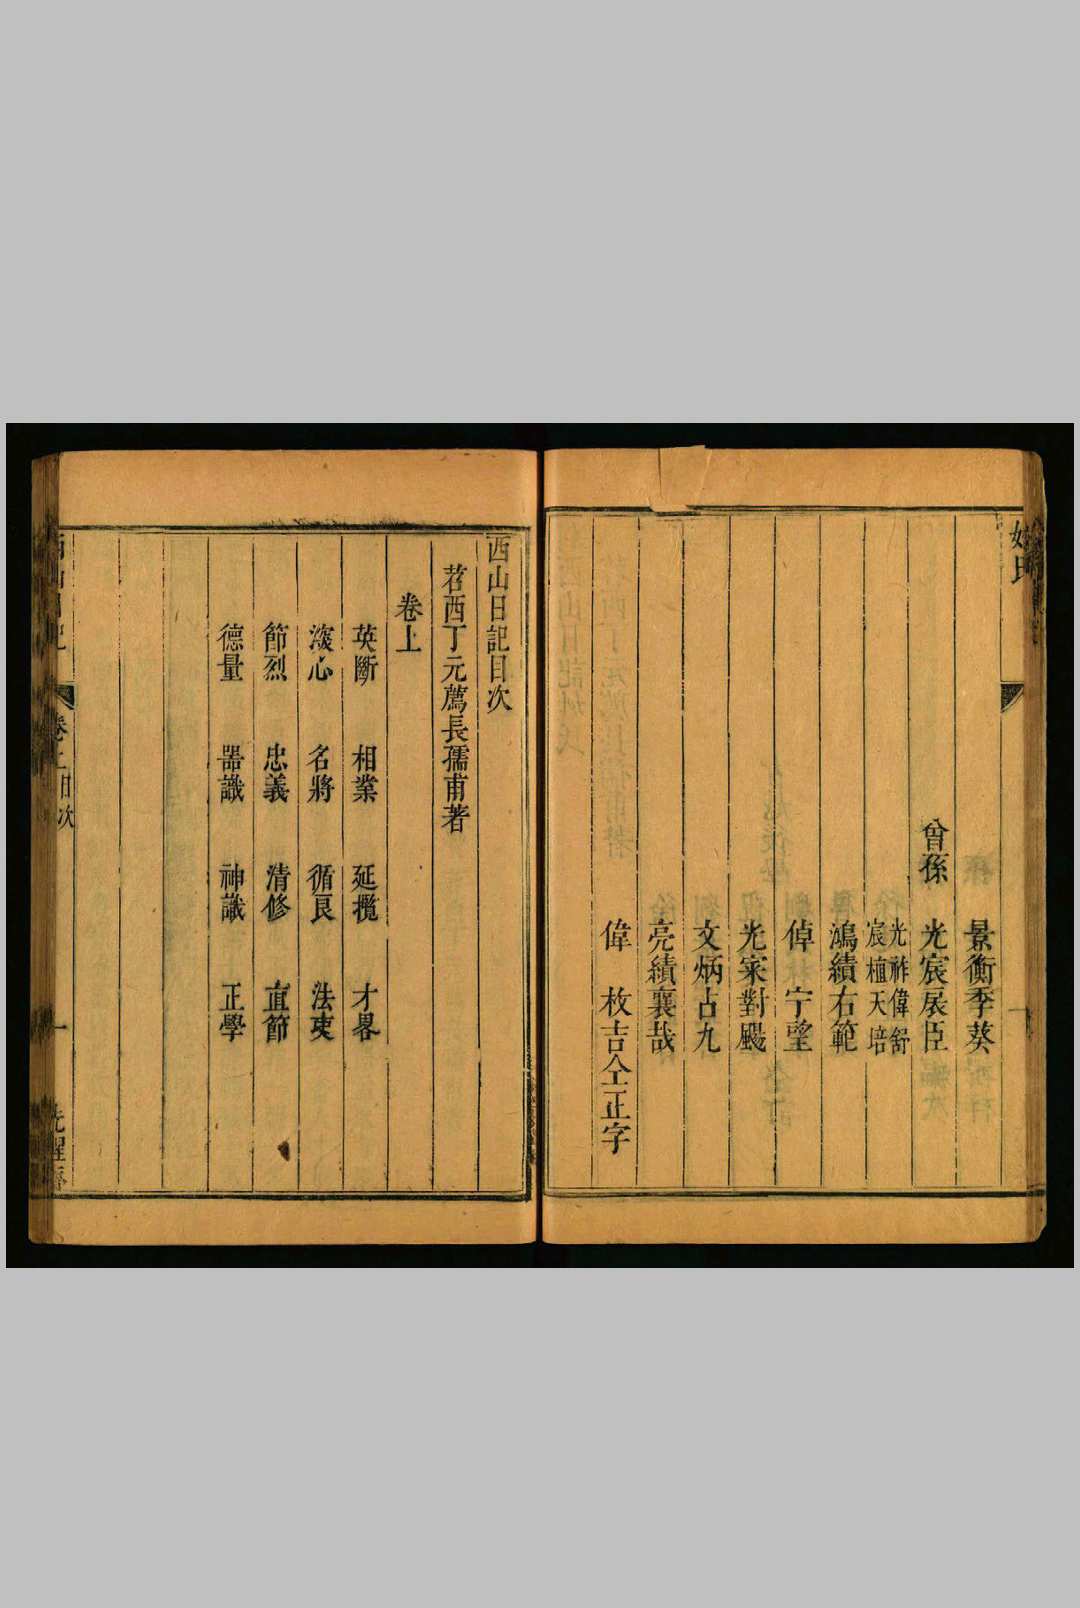 姓氏
景衡季葵
曾孫 光宸展臣
光祚偉舒
宸植天培
鴻績右範
倬 宁望
光宷對颺
文炳占九
亮績襄哉
偉 枚吉仝正字
西山日記目次
苕西丁元薦長孺甫著
卷上
英斷 相業 延攬 才畧
深心 名將 循良 法吏
節烈 忠義 清修 直節
德量 器識 神識 正學
西山日記 卷上目次 一 先醒齋